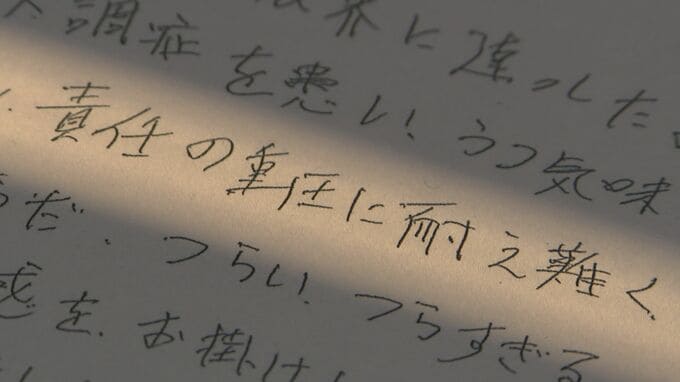 限界に達した。
調症を患い、うつ気味
責任の重圧に耐え難く
だ、つらい、つらすぎる
惑を、お掛け